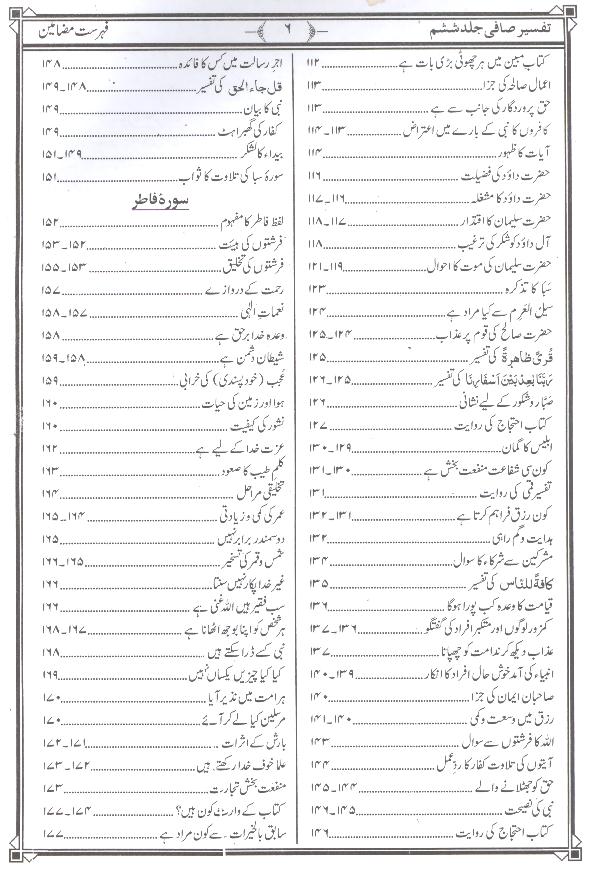 تفسیر صافی جلد ششم
۶
فہرست مضامین
کتاب مبین میں ہر چھوٹی بڑی بات ہے ۱۱۲
اعمال صالحہ کی جزا ۱۱۳
حق پروردگار کی جانب سے ہے ۱۱۳
کافروں کا نبی کے بارے میں اعتراض ۱۱۳۔۱۱۴
آیات کا ظہور ۱۱۴
حضرت داؤد کی فضیلت ۱۱۶
حضرت داؤد کا مشغلہ ۱۱۶۔۱۱۷
حضرت سلیمان کا اقتدار ۱۱۷۔۱۱۸
آل داؤد کو شکر کی ترغیب ۱۱۸
حضرت سلیمان کی موت کا احوال ۱۱۹۔۱۲۱
سبا کا تذکرہ ۱۲۳
سیل العرم سے کیا مراد ہے ۱۲۴
حضرت صالح کی قوم پر عذاب ۱۲۴۔۱۲۵
قُرًى ظَاهِرَةً کی تفسیر ۱۲۵
رَبَّنَا بٰعِدْ بَيْنَ اَسْفَارِنَا کی تفسیر ۱۲۵۔۱۲۶
صبّار و شکور کے لیے نشانی ۱۲۶
کتاب احتجاج کی روایت ۱۲۷
ابلیس کا گمان ۱۲۹۔۱۳۰
کون سی شفاعت منفعت بخش ہے ۱۳۰۔۱۳۱
تفسیر قمی کی روایت ۱۳۱
کون رزق فراہم کرتا ہے ۱۳۱۔۱۳۲
ہدایت و گم راہی ۱۳۲
مشرکین سے شرکاء کا سوال ۱۳۴
كافة للناس کی تفسیر ۱۳۵
قیامت کا وعدہ کب پورا ہوگا ۱۳۶
کمزور لوگوں اور متکبر افراد کی گفتگو ۱۳۶۔۱۳۷
عذاب دیکھ کر ندامت کو چھپانا ۱۳۷
انبیاء کی آمد خوش حال افراد کا انکار ۱۳۹۔۱۴۰
صاحبان ایمان کی جزا ۱۴۰
رزق میں وسعت و کمی ۱۴۰۔۱۴۱
اللہ کا فرشتوں سے سوال ۱۴۳
آیتوں کی تلاوت کفار کا ردِّ عمل ۱۴۴
حق کو جھٹلانے والے ۱۴۴۔۱۴۵
نبی کی نصیحت ۱۴۵۔۱۴۶
کتاب احتجاج کی روایت ۱۴۶
اجر رسالت میں کس کا فائدہ ۱۴۸
قل جاء الحق کی تفسیر ۱۴۸۔۱۴۹
نبی کا بیان ۱۴۹
کفار کی گھبراہٹ ۱۴۹
بیداء کا لشکر ۱۴۹۔۱۵۱
سورۂ سبا کی تلاوت کا ثواب ۱۵۱
سورۂ فاطر
لفظ فاطر کا مفہوم ۱۵۲
فرشتوں کی ہیئت ۱۵۲۔۱۵۳
فرشتوں کی تخلیق ۱۵۳۔۱۵۵
رحمت کے دروازے ۱۵۷
نعمات الٰہی ۱۵۷۔۱۵۸
وعدہ خدا برحق ہے ۱۵۸
شیطان دشمن ہے ۱۵۸۔۱۵۹
عُجب (خود پسندی) کی خرابی ۱۵۹
ہوا اور زمین کی حیات ۱۶۰
نشور کی کیفیت ۱۶۰
عزت خدا کے لیے ہے ۱۶۲
کلمِ طیب کا صعود ۱۶۳
تخلیقی مراحل ۱۶۴
عمر کی کمی و زیادتی ۱۶۴۔۱۶۵
دو سمندر برابر نہیں ۱۶۵
شمس و قمر کی تسخیر ۱۶۵۔۱۶۶
غیر خدا پکار نہیں سنتا ۱۶۶
سب فقیر ہیں اللہ غنی ہے ۱۶۶
ہر شخص کو اپنا بوجھ اٹھانا ہے ۱۶۷۔۱۶۸
نبی کسے ڈرا سکتے ہیں ۱۶۸
کیا کیا چیزیں یکساں نہیں ۱۶۹
ہر امت میں نذیر آیا ۱۷۰
مرسلین کیا لے کر آئے ۱۷۰
بارش کے اثرات ۱۷۱۔۱۷۲
علما خوف خدا رکھتے ہیں ۱۷۲۔۱۷۳
منفعت بخش تجارت ۱۷۳
کتاب کے وارث کون ہیں؟ ۱۷۴۔۱۷۷
سابق بالخیرات سے کون مراد ہے ۱۷۷